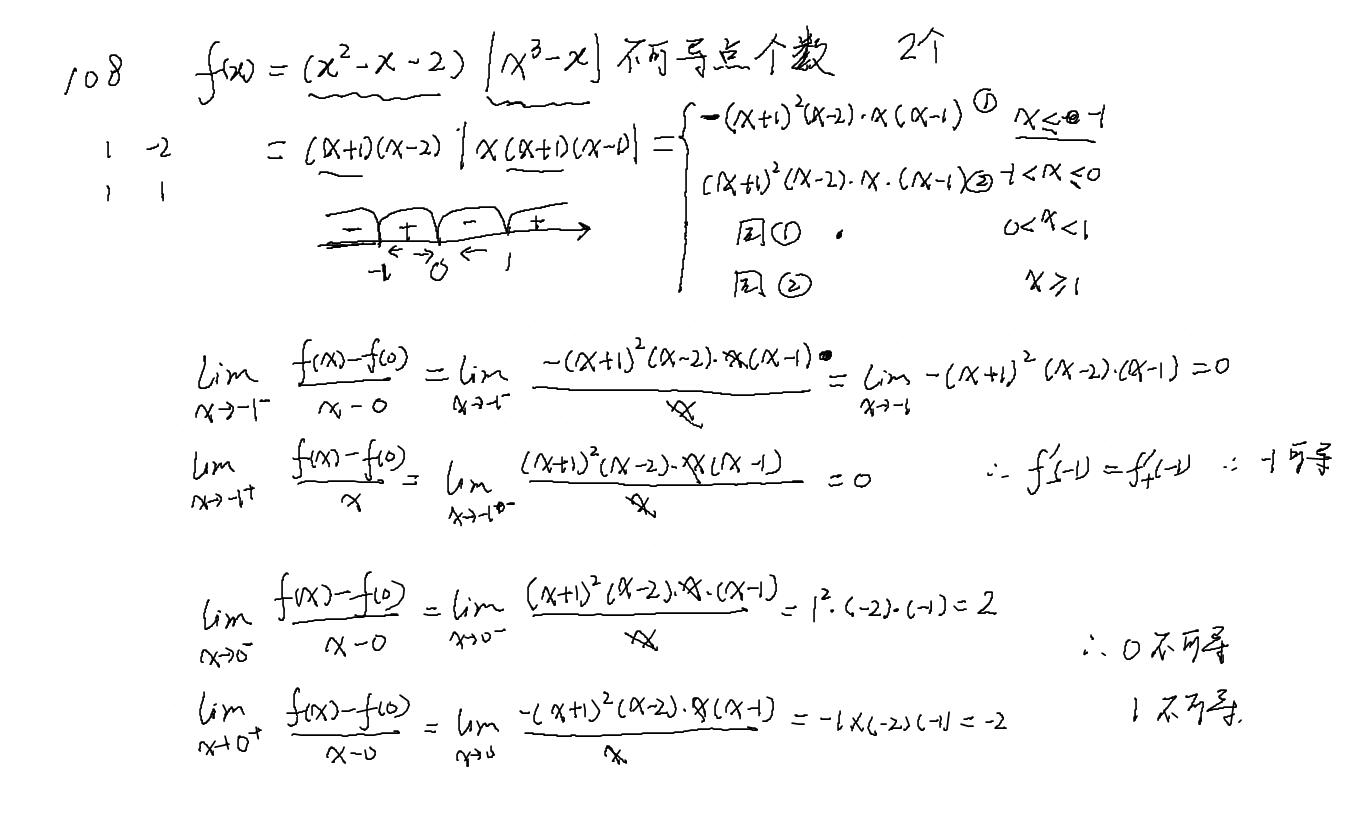 108 f(x) = (x²-x-2) |x³-x| 不可导点个数 2个
1 -2
1 1
= (x+1)(x-2) |x(x+1)(x-1)| = { -(x+1)²(x-2)·x(x-1) ① x≤-1
(x+1)²(x-2)·x·(x-1) ② -1<x≤0
同① 0<x<1
同② x≥1
- + - +
-1 0 1
lim x→-1⁻ (f(x)-f(0))/(x-0) = lim x→-1⁻ (-(x+1)²(x-2)·x(x-1))/x = lim x→-1 -(x+1)²(x-2)·(x-1) = 0
lim x→-1⁺ (f(x)-f(0))/x = lim x→-1⁻ ((x+1)²(x-2)·x(x-1))/x = 0 ∴ f'₋(-1) = f'₊(-1) ∴ -1可导
lim x→0⁻ (f(x)-f(0))/(x-0) = lim x→0⁻ ((x+1)²(x-2)·x·(x-1))/x = 1²·(-2)·(-1) = 2
∴ 0不可导
lim x→0⁺ (f(x)-f(0))/(x-0) = lim x→0 (-(x+1)²(x-2)·x(x-1))/x = -1×(-2)(-1) = -2
1不可导.